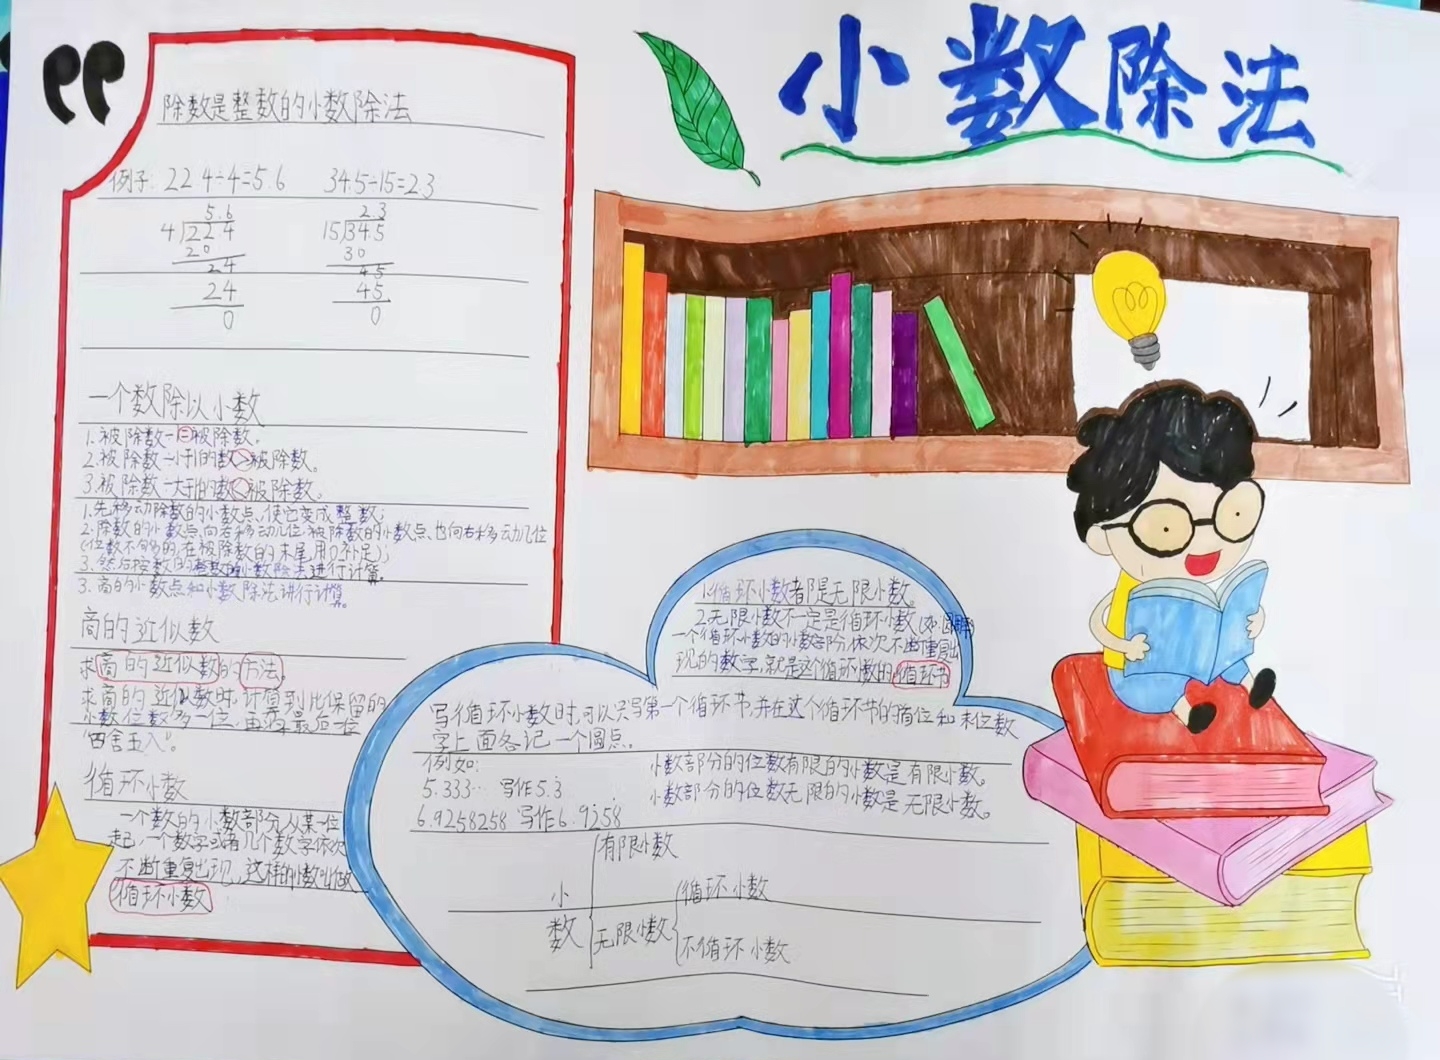 小数除法
除数是整数的小数除法
例子: 22.4÷4=5.6 34.5÷15=2.3
5.6 2.3
4 22.4 15 34.5
20 30
24 45
24 45
0 0
一个数除以小数
1.被除数÷1=被除数。
2.被除数÷小于1的数>被除数。
3.被除数÷大于1的数<被除数。
1.先移动除数的小数点,使它变成整数;
2.除数的小数点向右移动几位,被除数的小数点、也向右移动几位
(位数不够的,在被除数的末尾用0补足);
3.然后按数的整数的小数除法进行计算。
3.商的小数点和小数除法进行计算。
商的近似数
求商的近似数的方法。
求商的近似数时,计算到比保留的
小数位数多一位,再将最后一位
“四舍五入”。
循环小数
一个数的小数部分从某一位
起,一个数字或者几个数字依次
不断重复出现,这样的小数叫做
循环小数
1.循环小数都是无限小数。
2.无限小数不一定是循环小数
一个循环小数的小数部分依次不断重复出
现的数字,就是这个循环小数的循环节
写循环小数时,可以只写第一个循环节,并在这个循环节的首位和末位数
字上面各记一个圆点。
例如:
5.333… 写作5.3
6.9258258 写作6.9258
小数部分的位数有限的小数是有限小数。
小数部分的位数无限的小数是无限小数。
小数
有限小数
无限小数
循环小数
不循环小数